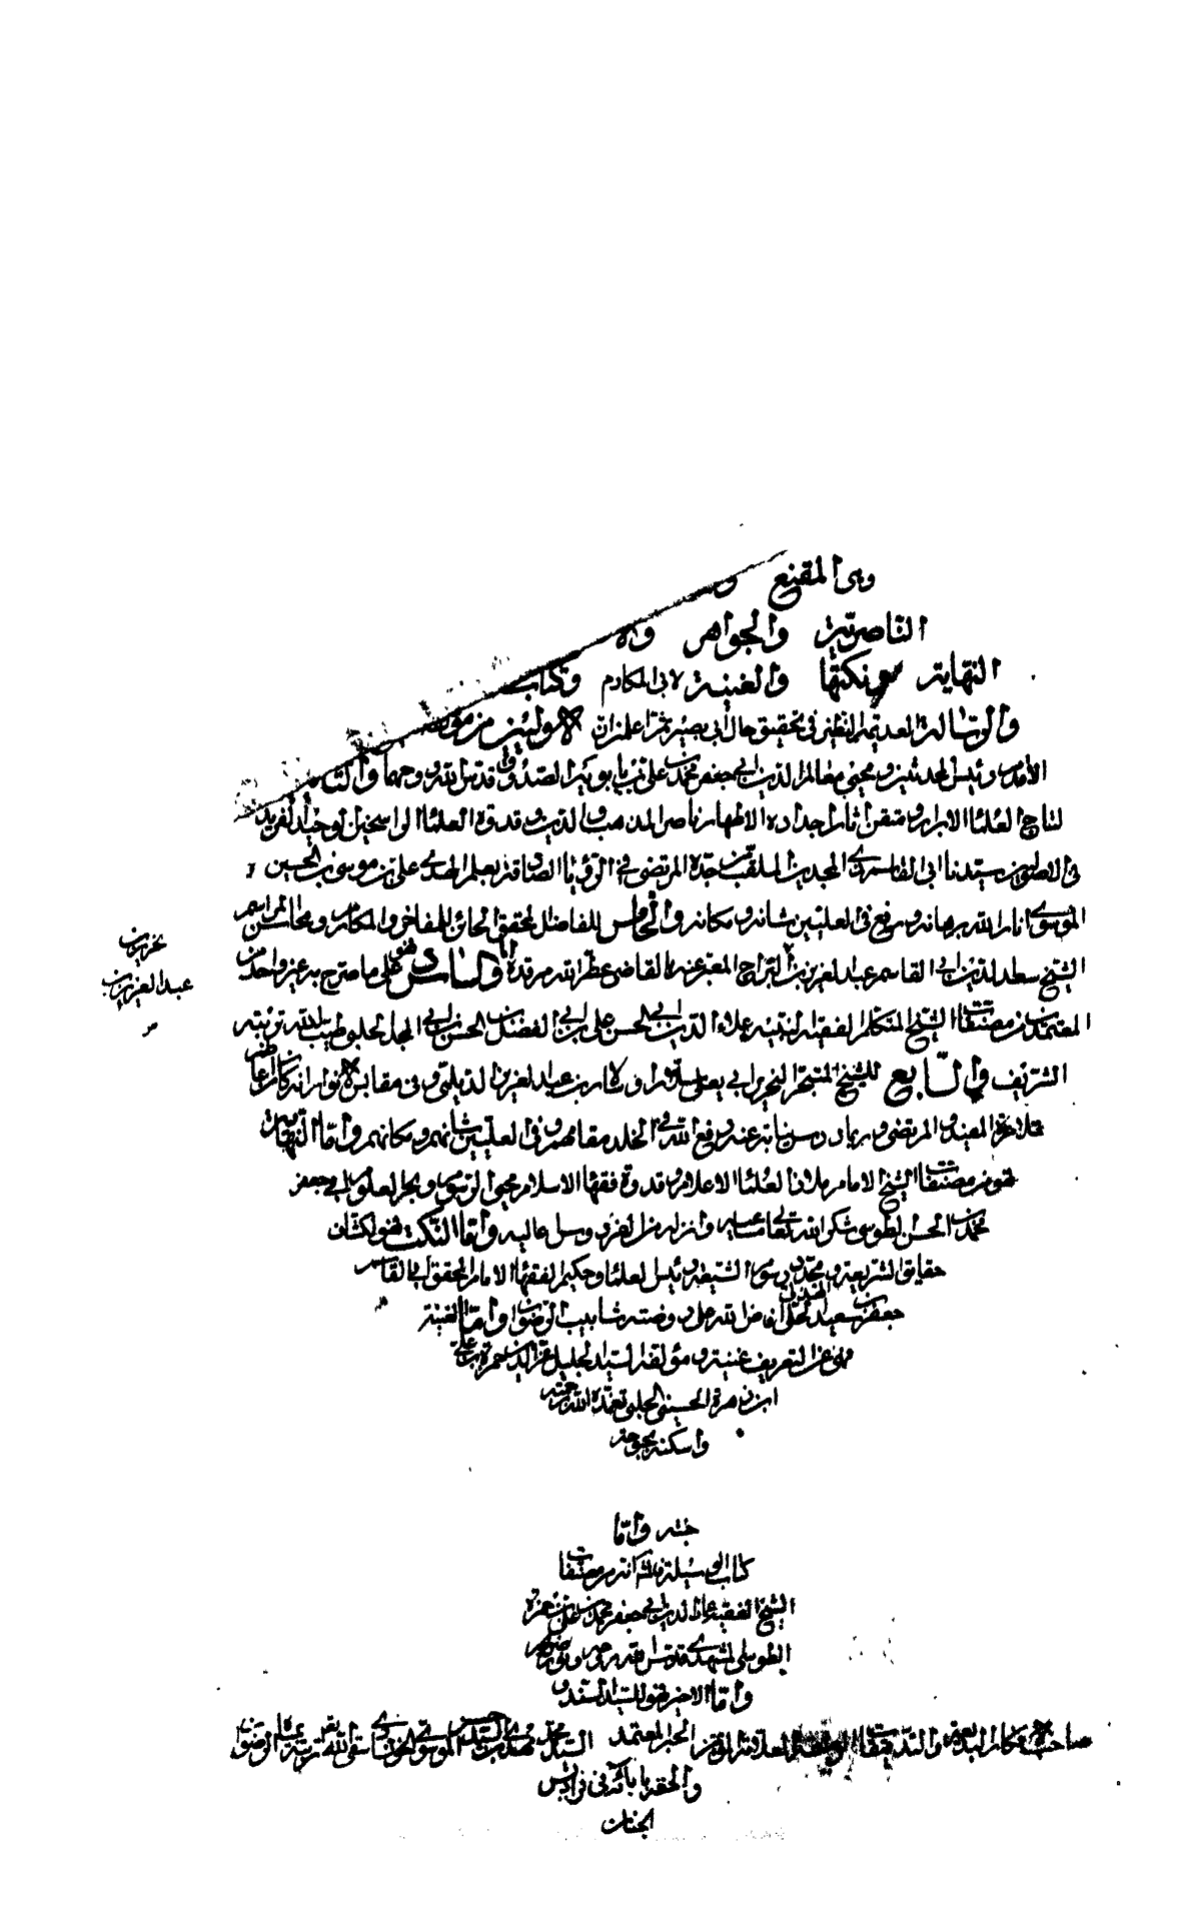 وهى المقنع و
الناصرية والجواهر
النهاية ونكتها والغنية لابى المكارم وكتاب
والرسالة العديمة النظير فى تحقيق حال ابى بصير ثم اعلم ان الاولين من
الامام رئيس المحدثين ومحيى معالم الدين ابى جعفر محمد بن على بن بابويه الصدوق قدس الله روحهما
لتاج العلماء الابرار ومتقن اثار اجداده الاطهار ناصر المذهب والدين وقدوة العلماء الراسخين
سيدنا ابى القاسم الملقب من جده المرتضى فى الرؤيا الصادقة بعلم الهدى على بن موسى بن الحسين
الموسوى انار الله برهانه ورفع فى العليين شانه ومكانه والخامس للفاضل المحقق الحائز للمفاخر والمكارم ومحاسن المراسم
الشيخ سعد الدين ابى القاسم عبد العزيز بن البراج المعبر عنه بالقاضى عطر الله مرقده واما السادس فهو على ما صرح به غير واحد من
المعتمدين من مصنفات الشيخ المتكلم الفقيه النبيه علاء الدين ابى الحسن على بن ابى الفضل الحسن بن ابى المجد الحلبى طيب الله تربته
الشريف والسابع للشيخ المتبحر النحرير ابى يعلى سلار بن عبد العزيز الديلمى وفى مقابس الانوار انه كان من اعاظم
تلامذة المفيد والمرتضى وربما درس نيابة عنه رفع الله فى الخلد مقامهم وفى العليين شانهم ومكانهم واما النهاية
فهو من مصنفات الشيخ الامام ملاذ العلماء الاعلام وقدوة فقهاء الاسلام محيى الرسوم وبحر العلوم ابى جعفر
محمد بن الحسن الطوسى شكر الله تعالى مساعيه وانزله من الغرف وسل عاليه واما النكت فهو لكشاف
حقايق الشريعة ومجدد رسوم الشيعة رئيس العلماء وحكيم الفقهاء الامام المحقق ابى القاسم
جعفر بن سعيد الحلى افاض الله على روضته شابيب الرضوان واما الغنية
فهى عن التعريف غنية ومؤلفه السيد الجليل عز الدين حمزة بن على
ابن زهرة الحسينى الحلبى تغمده الله برحمته
واسكنه بحبوحة
جنته واما
كتاب الوسيلة من مصنفات
الشيخ الفقيه عماد الدين ابى جعفر محمد بن على بن حمزة
الطوسى المشهدى قدس الله روحه ونور ضريحه
واما الاخير فهو للسيد السند
صاحب الافكار البديعة والتدقيقات العلامة المؤتمن الحبر المعتمد السيد محمد مهدى بن السيد حسن الموسوى الخونسارى سقى الله تعالى تربته بمياه الرضوان
والحقه بابائه فى فراديس
الجنان
نحرير بن
عبد العزيز بن